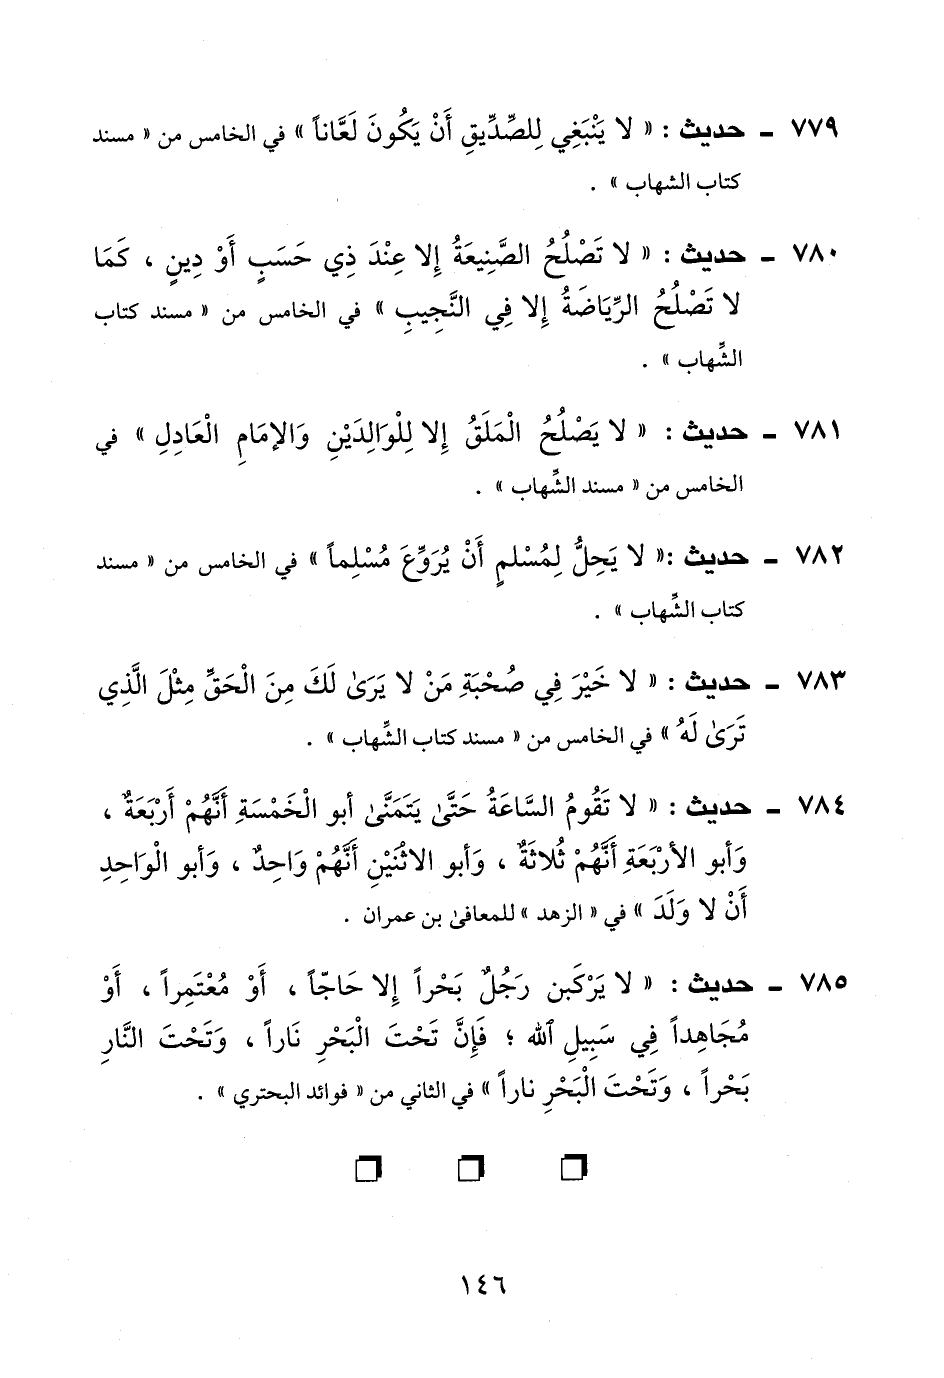 ٧٧٩ - حديث : « لا يَنْبَغِي لِلصِّدِّيقِ أَنْ يَكُونَ لَعَّاناً » في الخامس من « مسند
كتاب الشهاب » .
٧٨٠ - حديث : « لا تَصْلُحُ الصَّنِيعَةُ إِلا عِنْدَ ذِي حَسَبٍ أَوْ دِينٍ ، كَمَا
لا تَصْلُحُ الرِّيَاضَةُ إِلا فِي النَّجِيبِ » في الخامس من « مسند كتاب
الشِّهاب » .
٧٨١ - حديث : « لا يَصْلُحُ الْمَلَقُ إِلا لِلْوَالِدَيْنِ وَالإمَامِ الْعَادِلِ » في
الخامس من « مسند الشِّهاب » .
٧٨٢ - حديث :« لا يَحِلُّ لِمُسْلمٍ أَنْ يُرَوِّعَ مُسْلِماً » في الخامس من « مسند
كتاب الشِّهاب » .
٧٨٣ - حديث : « لا خَيْرَ فِي صُحْبَةِ مَنْ لا يَرَىٰ لَكَ مِنَ الْحَقِّ مِثْلَ الَّذِي
تَرَىٰ لَهُ » في الخامس من « مسند كتاب الشِّهاب » .
٧٨٤ - حديث : « لا تَقُومُ السَّاعَةُ حَتَّىٰ يَتَمَنَّىٰ أبو الْخَمْسَةِ أَنَّهُمْ أَرْبَعَةٌ ،
وَأبو الأرْبَعَةِ أَنَّهُمْ ثُلاثَةٌ ، وَأبو الاثْنَيْنِ أَنَّهُمْ وَاحِدٌ ، وَأبو الْوَاحِدِ
أَنْ لا وَلَدَ » في « الزهد » للمعافىٰ بن عمران .
٧٨٥ - حديث : « لا يَرْكَبن رَجُلٌ بَحْراً إِلا حَاجّاً ، أَوْ مُعْتَمِراً ، أَوْ
مُجَاهِداً فِي سَبِيلِ ٱلله ؛ فَإِنَّ تَحْتَ الْبَحْرِ نَاراً ، وَتَحْتَ النَّارِ
بَحْراً ، وَتَحْتَ الْبَحْرِ ناراً » في الثاني من « فوائد البحتري » .
١٤٦